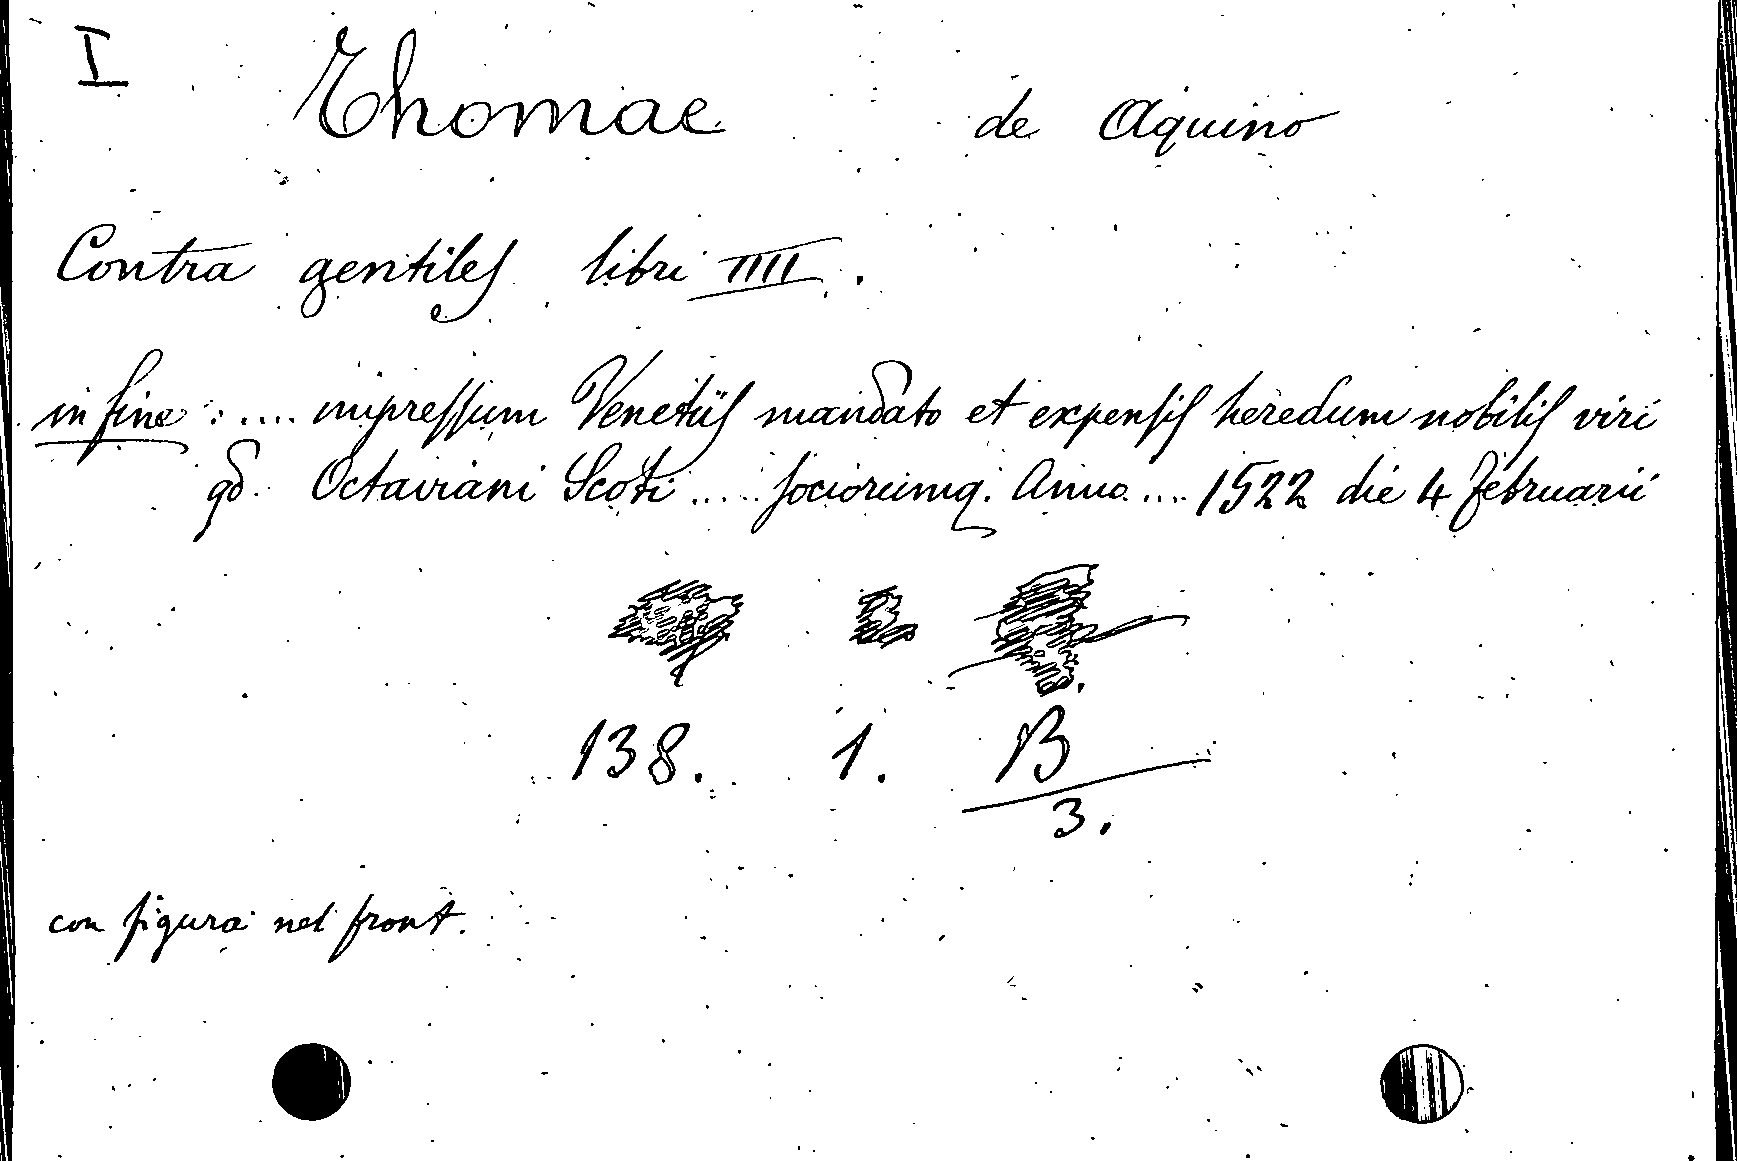 I
Thomae de Aquino
Contra gentiles libri IIII.
in fine: .... impressum Venetiis mandato et expensis heredum nobilis viri
qd. Octaviani Scoti ..... sociorumq. Anno .... 1522 die 4 februarii
138. 1. B
3.
con figura nel front.